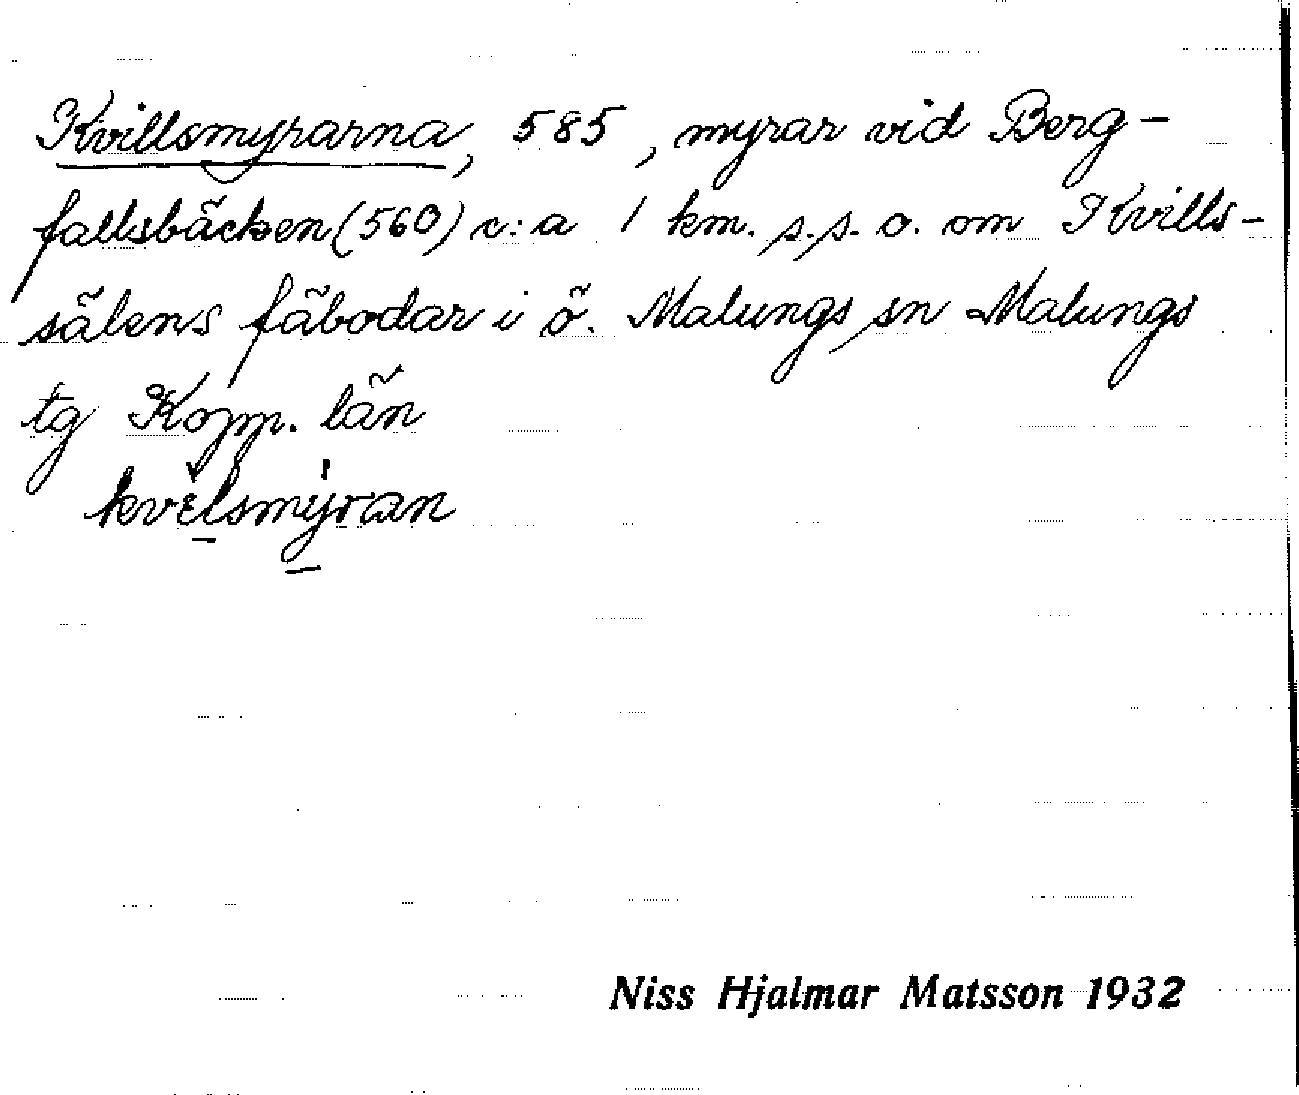 Kvillsmyrarna, 585, myrar vid Berg-
fallsbäcken (560) c:a 1 km. s.s.o. om Kvills-
sälens fäbodar i ö. Malungs sn Malungs
tg Kopp. län
kvelsmyran
Niss Hjalmar Matsson 1932